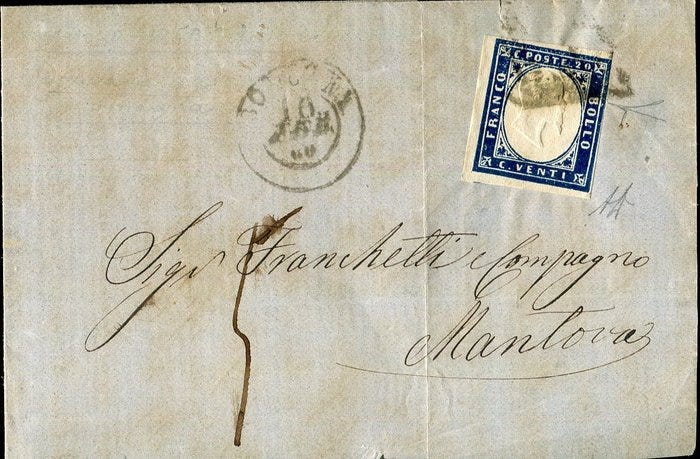 C. POSTE. 20
FRANCO
BOLLO
C. VENTI
10
60
5
Sigri Franchetti e Compagno
Mantova